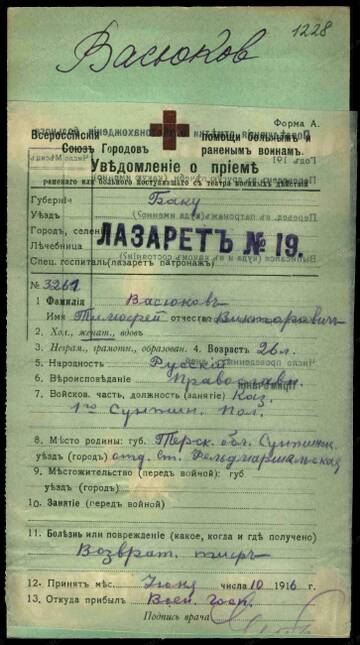 1228
Васюков
Форма А.
Всероссійскій помощи больнымъ и
Союзъ Городовъ раненымъ воинамъ.
Увѣдомленіе о пріемѣ
раненаго или больного поступающаго съ театра военныхъ дѣйствій
Губернія Баку
Уѣздъ
Городъ, селен
Лѣчебница
ЛАЗАРЕТЪ № 19.
Спец. госпиталь (лазарет патронажъ)
№ 3261
1 Фамилія Васюковъ
Имя Тимофей отчество Викторовичъ
2. Хол., женат., вдовъ
3. Неграм., грамотн., образован. 4. Возрастъ 26 л.
5. Народность Русскій
6. Вѣроисповѣданіе Православн.
7. Войсков. часть, должность (занятіе) Каз.
1го Сунжен. Пол.
8. Мѣсто родины: губ. Терск. обл. Сунжен.
уѣздъ (городъ) отд. ст. Фельдмаршальская
9. Мѣстожительство (передъ войной): губ
уѣздъ (городъ)
10. Занятіе (передъ войной)
11. Болѣзнь или поврежденіе (какое, когда и гдѣ получено)
Возврат. тифъ
12. Принятъ мѣс. Іюня числа 10 1916 г.
13. Откуда прибылъ Воен. госп.
Подпись врача